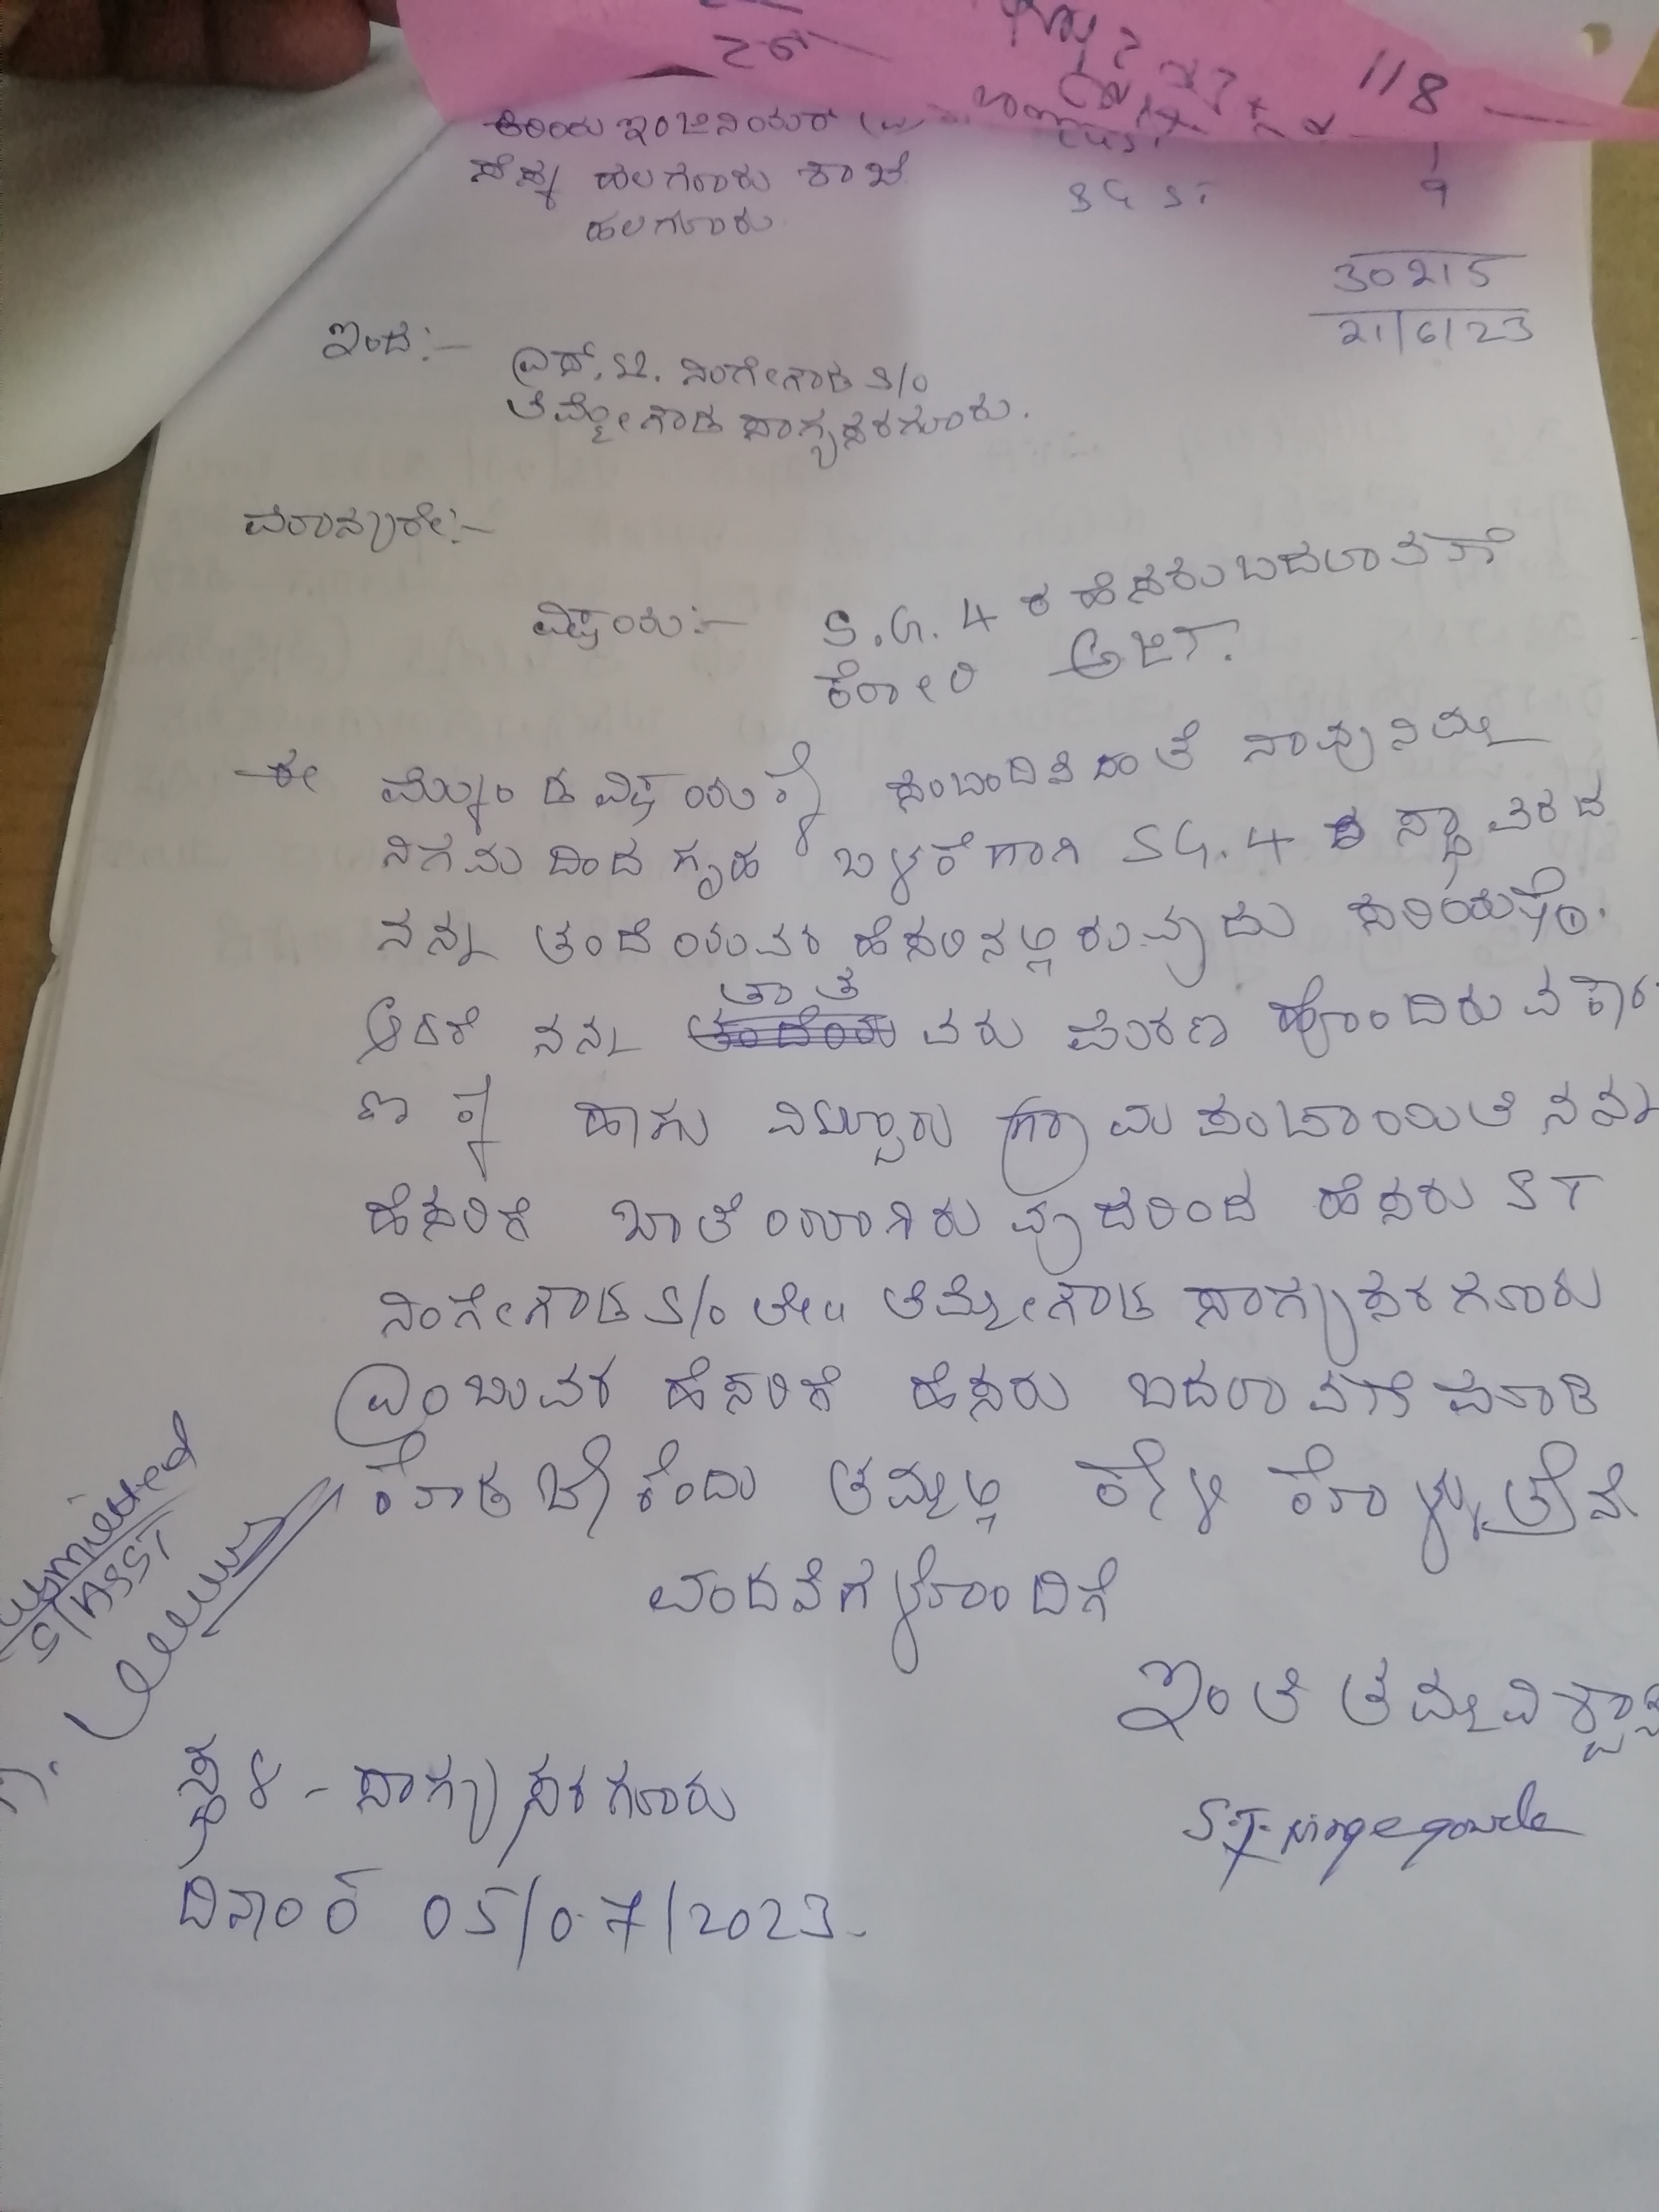 118
ಕಿರಿಯ ಇಂಜಿನಿಯರ್
ಸೆಸ್ಕ ಹಲಗೂರು ಶಾಖೆ
SGST 9
ಹಲಗೂರು
30215
21/6/23
ಇಂದ:-
ಎಸ್.ಟಿ. ನಿಂಗೇಗೌಡ S/o
ತಮ್ಮೇಗೌಡ ಬಾಗ್ಯಸರಗೂರು.
ಮಾನ್ಯರೇ:-
ವಿಷಯ:- S.G.4 ರ ಹೆಸರು ಬದಲಾವಣೆ
ಕೋರಿ ಅರ್ಜಿ.
ಈ ಮೇಲ್ಕಂಡ ವಿಷಯಕ್ಕೆ ಸಂಬಂದಿಸಿದಂತೆ ನಾವು ನಿಮ್ಮ
ನಿಗಮದಿಂದ ಗೃಹ ಬಳಕೆಗಾಗಿ SG.4 ರ ಸ್ಥಾವರದ
ನನ್ನ ತಂದೆಯವರ ಹೆಸರಿನಲ್ಲಿರುವುದು ಸರಿಯಷ್ಟೆ.
ತಾತ
ಆದರೆ ನನ್ನ ತಂದೆಯ ವರು ಮರಣ ಹೊಂದಿರುವ ಕಾರ
ಣಕ್ಕೆ ಹಾಗು ಗ್ರಾಮ ಪಂಚಾಯಿತಿ ನನ್ನ
ಹೆಸರಿಗೆ ಖಾತೆಯಾಗಿರುವುದರಿಂದ ಹೆಸರು ST
ನಿಂಗೇಗೌಡ S/o ಲೇಟ್ ತಮ್ಮೇಗೌಡ ಬಾಗ್ಯಸರಗೂರು
ಎಂಬುವರ ಹೆಸರಿಗೆ ಹೆಸರು ಬದಲಾವಣೆ ಮಾಡಿ
ಕೊಡಬೇಕೆಂದು ತಮ್ಮಲ್ಲಿ ಕೇಳಿ ಕೊಳ್ಳುತ್ತೇನೆ
ವಂದನೆಗಳೊಂದಿಗೆ
ಇಂತಿ ತಮ್ಮ ವಿಶ್ವಾಸಿ
S.T. Ningegowda
S/ASST
ಸ್ಥಳ - ಬಾಗ್ಯಸರಗೂರು
ದಿನಾಂಕ 05/07/2023.